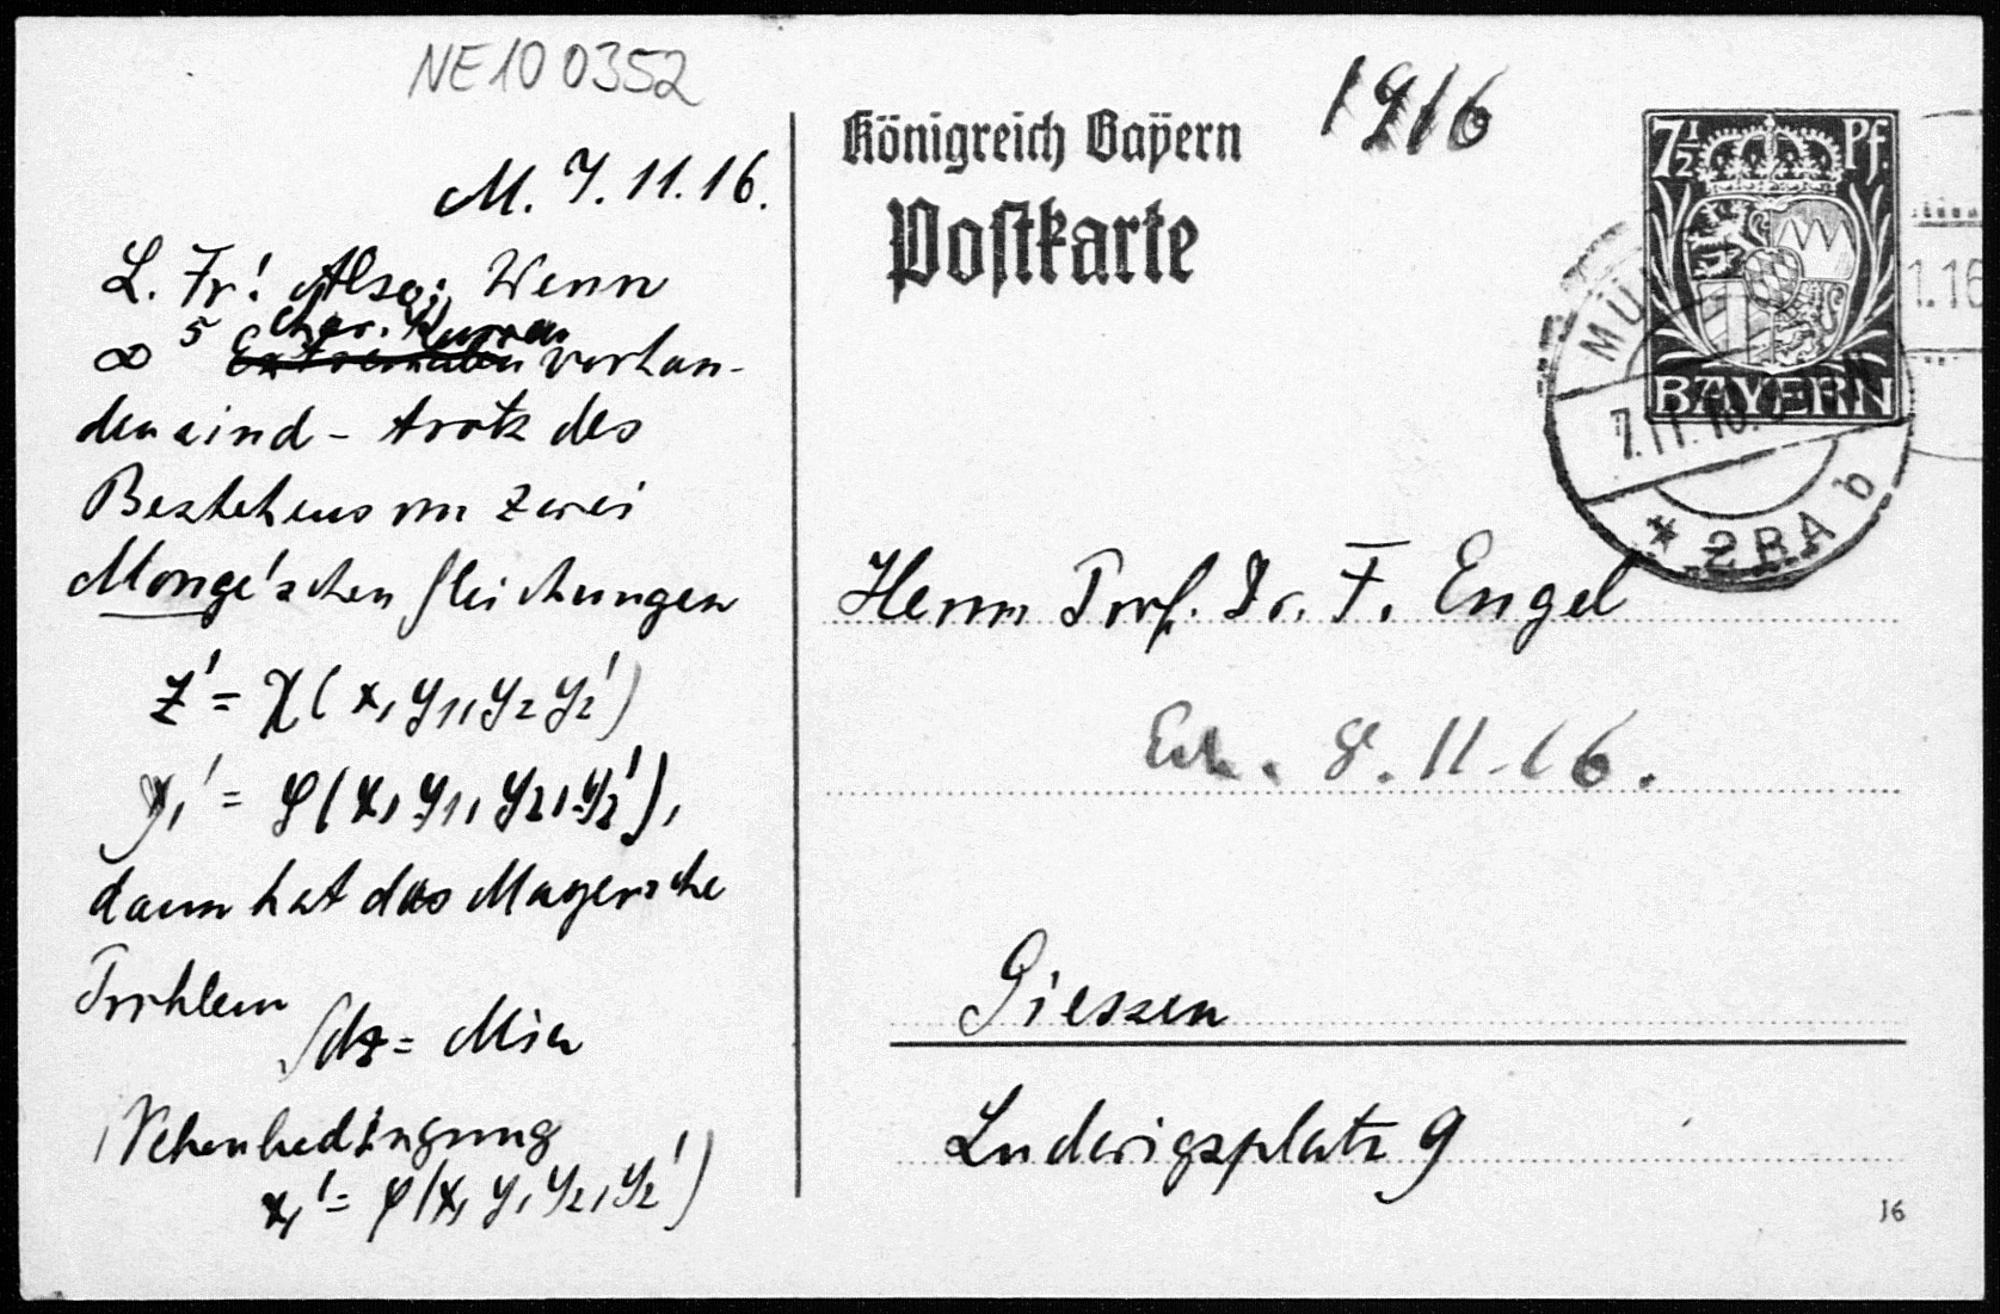 NE100352
M. 7.11.16.
L. Fr! Also: Wenn
char. Kurven
∞⁵ Extremalen vorhan-
den sind - trotz des
Bestehens von zwei
Monge'schen Gleichungen
z' = χ(x, y₁, y₂ y₂')
y₁' = φ(x, y₁, y₂, y₂'),
dann hat das Mayersche
Problem
∫dz = Min
Nebenbedingung
y₁' = φ(x, y₁ y₂, y₂')
Königreich Bayern
1916
Postkarte
7½ Pf.
BAYERN
7.11.16.
* 2BA b
1.16
Herrn Prof. Dr. F. Engel
8.11.16.
Giessen
Ludwigsplatz 9
16